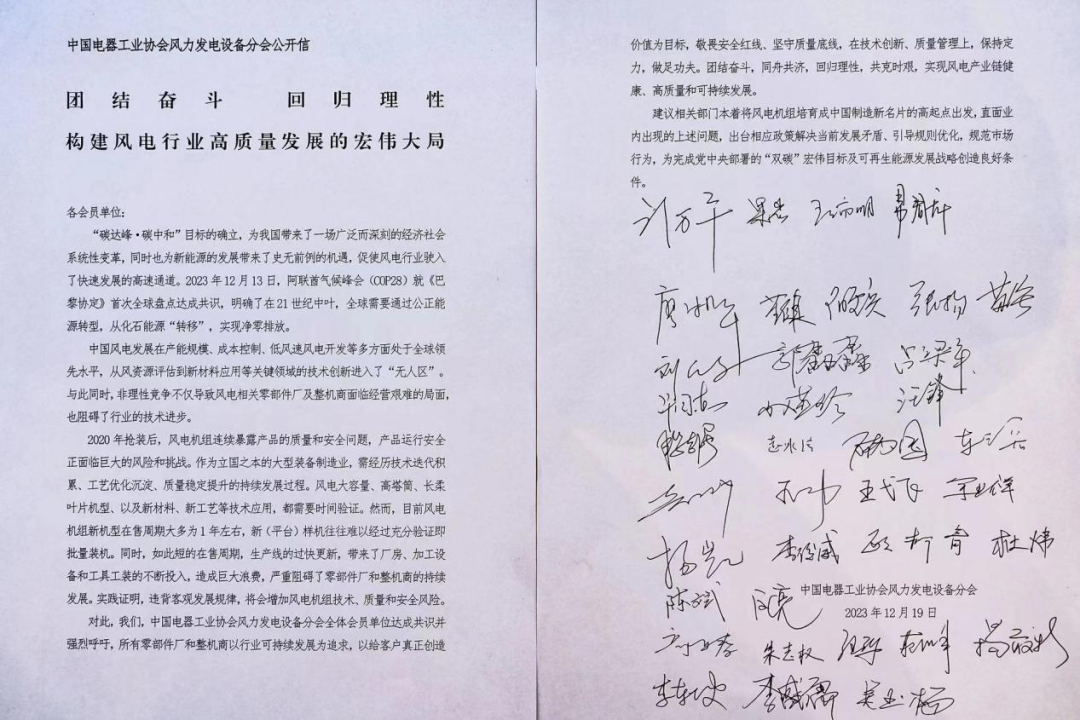 中国电器工业协会风力发电设备分会公开信
团结奋斗 回归理性
构建风电行业高质量发展的宏伟大局
各会员单位：
“碳达峰·碳中和”目标的确立，为我国带来了一场广泛而深刻的经济社会
系统性变革，同时也为新能源的发展带来了史无前例的机遇，促使风电行业驶入
了快速发展的高速通道。2023年12月13日，阿联首气候峰会（COP28）就《巴
黎协定》首次全球盘点达成共识，明确了在21世纪中叶，全球需要通过公正能
源转型，从化石能源“转移”，实现净零排放。
中国风电发展在产能规模、成本控制、低风速风电开发等多方面处于全球领
先水平，从风资源评估到新材料应用等关键领域的技术创新进入了“无人区”。
与此同时，非理性竞争不仅导致风电相关零部件厂及整机商面临经营艰难的局面，
也阻碍了行业的技术进步。
2020年抢装后，风电机组连续暴露产品的质量和安全问题，产品运行安全
正面临巨大的风险和挑战。作为立国之本的大型装备制造业，需经历技术迭代积
累、工艺优化沉淀、质量稳定提升的持续发展过程。风电大容量、高塔筒、长柔
叶片机型、以及新材料、新工艺等技术应用，都需要时间验证。然而，目前风电
机组新机型在售周期大多为1年左右，新（平台）样机往往难以经过充分验证即
批量装机。同时，如此短的在售周期，生产线的过快更新，带来了厂房、加工设
备和工具工装的不断投入，造成巨大浪费，严重阻碍了零部件厂和整机商的持续
发展。实践证明，违背客观发展规律，将会增加风电机组技术、质量和安全风险。
对此，我们，中国电器工业协会风力发电设备分会全体会员单位达成共识并
强烈呼吁，所有零部件厂和整机商以行业可持续发展为追求，以给客户真正创造
价值为目标，敬畏安全红线、坚守质量底线，在技术创新、质量管理上，保持定
力，做足功夫。团结奋斗，同舟共济，回归理性，共克时艰，实现风电产业链健
康、高质量和可持续发展。
建议相关部门本着将风电机组培育成中国制造新名片的高起点出发，直面业
内出现的上述问题，出台相应政策解决当前发展矛盾、引导规则优化，规范市场
行为，为完成党中央部署的“双碳”宏伟目标及可再生能源发展战略创造良好条
件。
张扬
汪锋
杨凯 李俊威 杜炜
陈斌
中国电器工业协会风力发电设备分会
2023年12月19日
朱志权